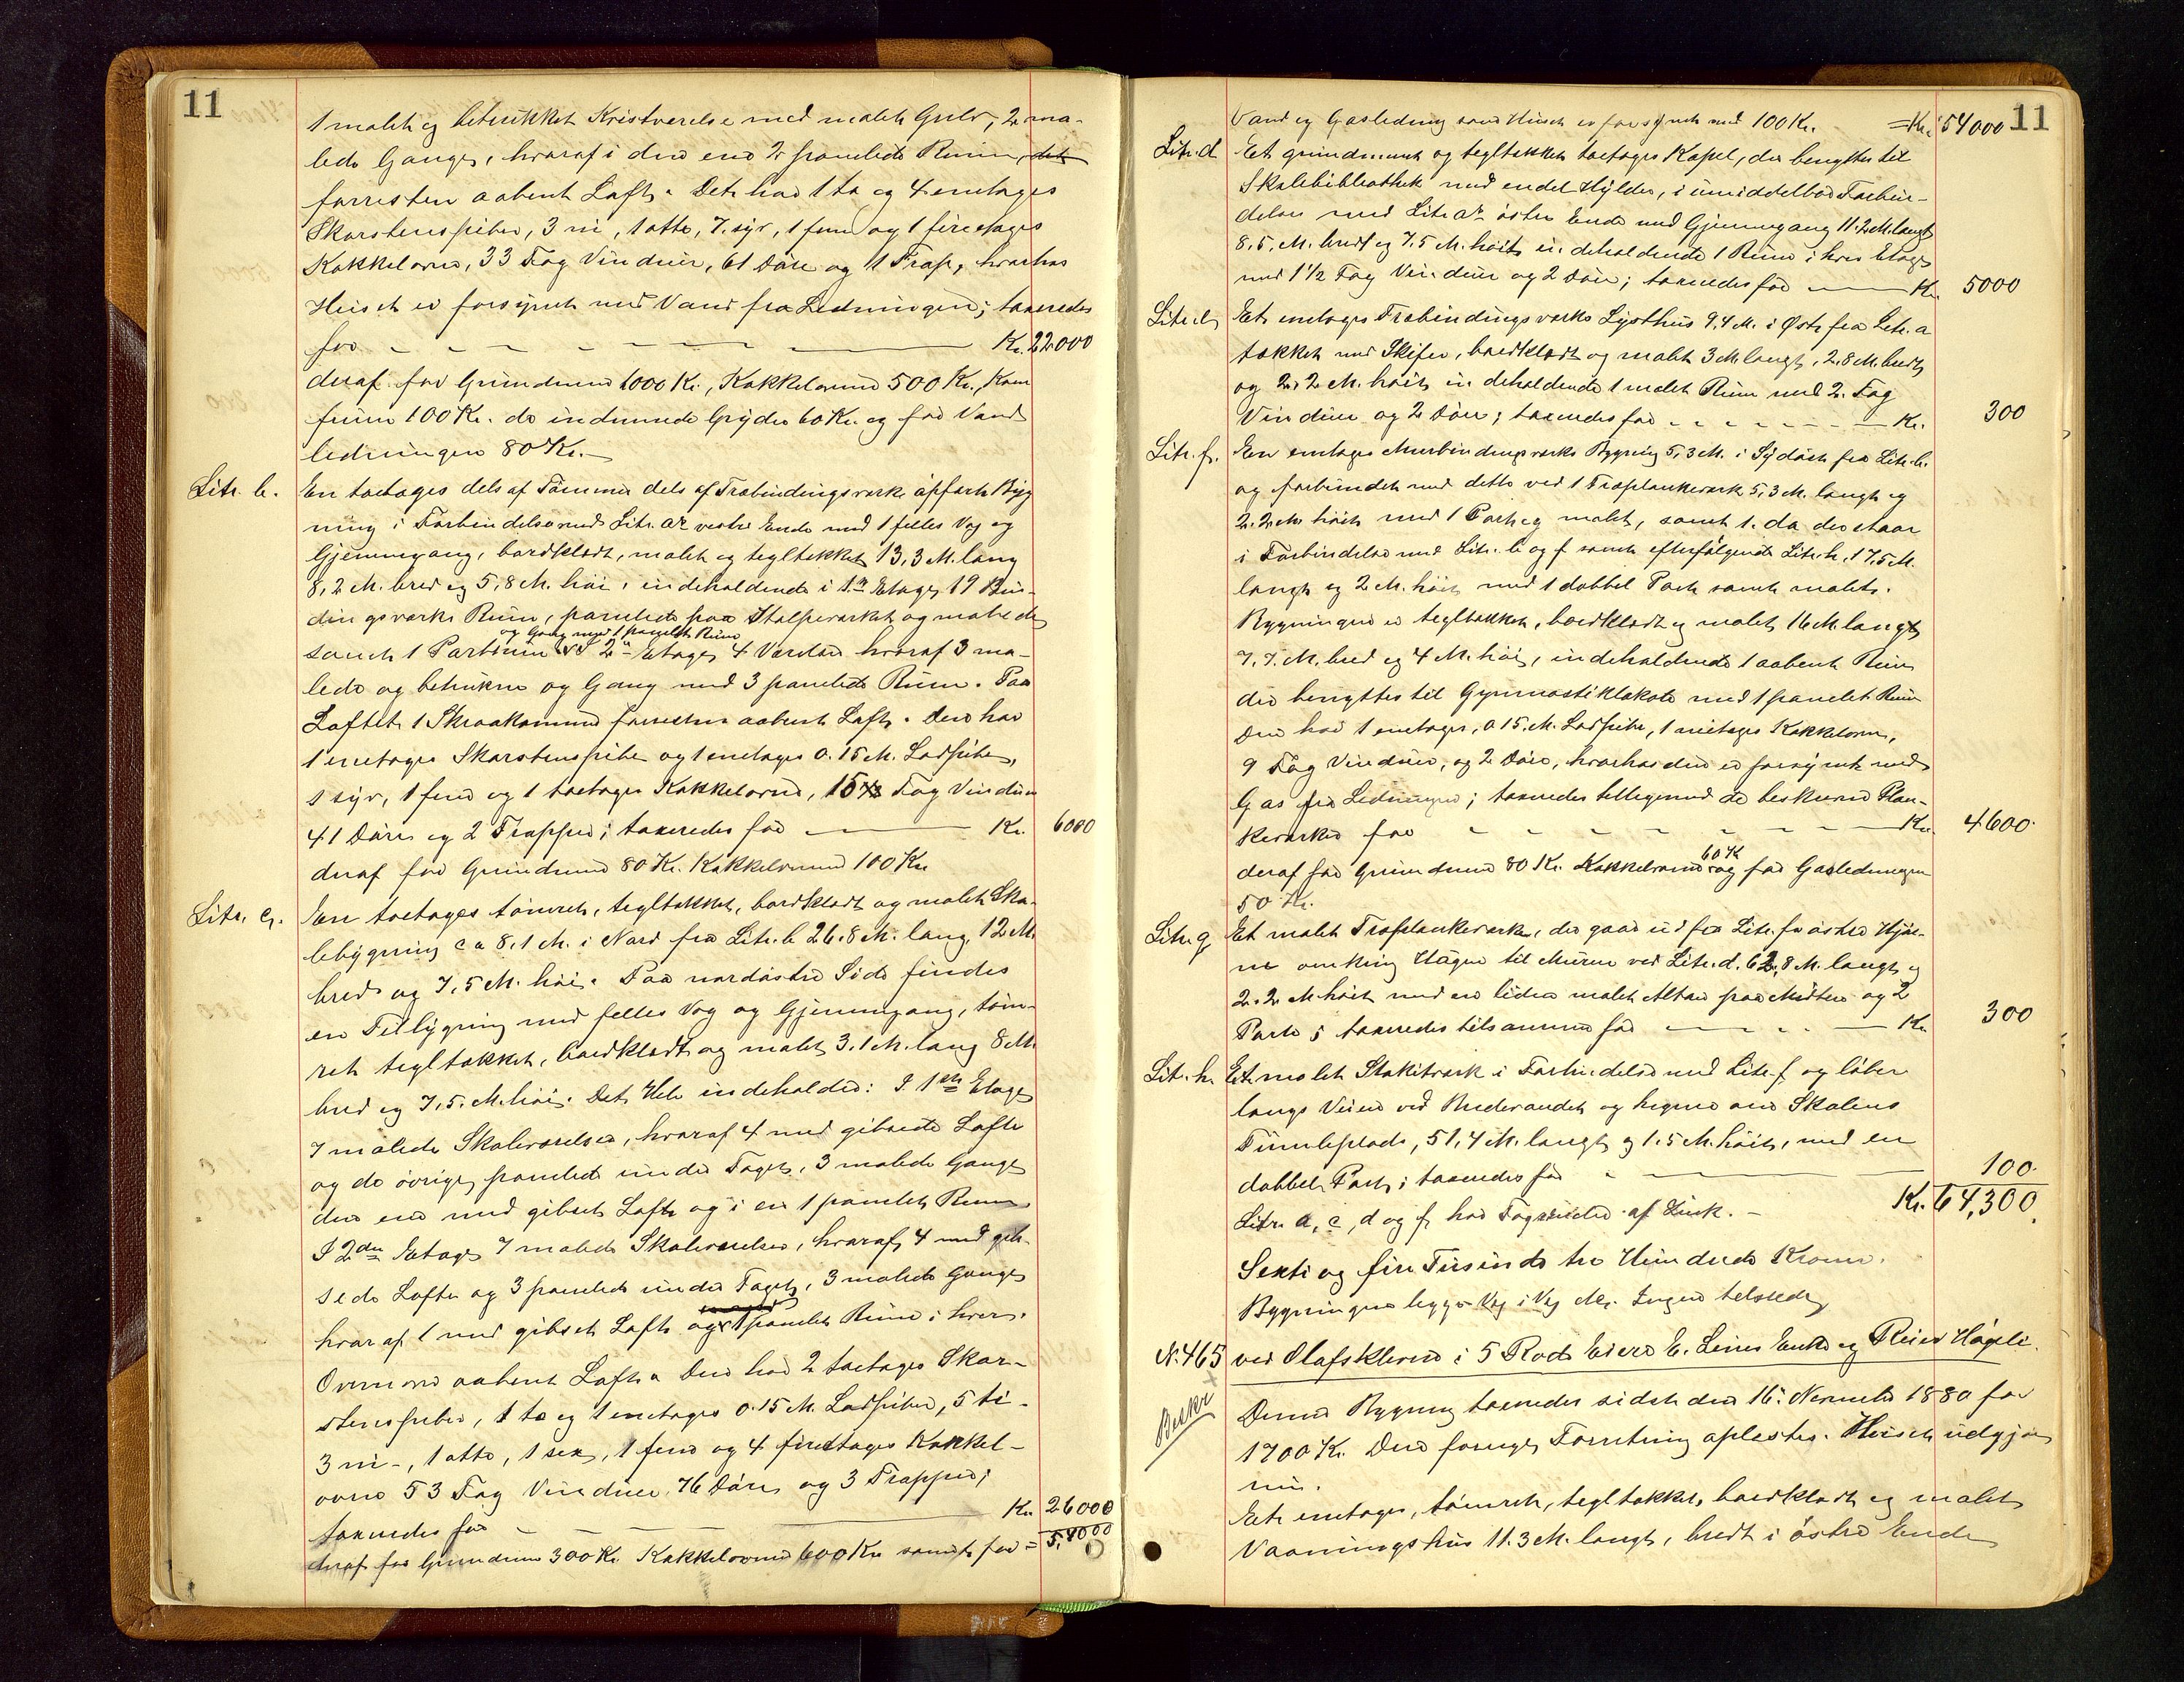 11
1 malet og betrukket Kvistværelse med malet Gulv, 2 ma-
lede Gange, hvoraf i den ene 2 panelede Rum, det
forresten aabent Loft. Det har 1 to og 4 enetages
Skorstenspiber, 3 ni, 1 otte, 7. syv, 1 fem og 1 fireetages
Kakkelovne, 33 Fag Vinduer, 61 Döre og 11 Trap, hvorhos
Huset er forsynet med Vand fra Ledningen; taxeredes
for Kr. 22000
deraf for Grundmur 1000 Kr., Kakkelovne 500 Kr., Kom
furer 100 Kr. de indmurede Gryder 60 Kr. og for Vand
ledningen 80 Kr.
Litr. b. En toetages dels af Tømmer dels af Træbindingsværk opfört Byg
ning i Forbindelse med Litr. a's vestre Ende med 1 felles Væg og
Gjennemgang, bordklædt, malet og tegltækket 13,3 M. lang
8,2 M. bred og 5,8 M. høi, indeholdende i 1ste Etage 19 Bin-
dingsværks Rum, panelede paa Stolpeværket og malede
og Gang med 1 panelet Rum
samt 1 Portrum I 2den Etage 4 Værelser hvoraf 3 ma-
lede og betrukne og Gang med 3 panelede Rum. Paa
Loftet 1 Skraakammer forresten aabent Loft. Den har
1 enetages Skorstenspibe og 1 enetages 0.15 M. Lodpibe,
1 syv, 1 fem og 1 toetages Kakkelovne, 15 Fag Vinduer
41 Döre og 2 Trapper; taxeredes for Kr. 6000
deraf for Grundmur 80 Kr. Kakkelovne 100 Kr.
Litr. c. En toetages tømret, tegltækket, bordklædt og malet Sko-
lebygning ca 8,1 M. i Nord fra Litr. b 26.8 M. lang, 12 M.
bred og 7,5 M. høi. Paa nordöstre Side findes
en Tilbygning med felles Væg og Gjennemgang, töm-
ret tegltækket, bordklædt og malet 3.1 M. lang 8 M.
bred og 7,5. M. høi. Det Hele indeholder: I 1ste Etage
7 malede Skoleværelser, hvoraf 4 med gibsede Lofte
og de övrige panelede under Taget, 3 malede Gange
den ene med gibset Loft og i en 1 panelet Rum
I 2den Etage 7 malede Skoleværelser, hvoraf 4 med gib-
sede Lofter og 3 panelede under Taget, 3 malede Gange
hvoraf 1 med gibset Loft og 1 panelet Rum i hver.
Ovenover aabent Loft. Den har 2 toetages Skor-
stenspiber, 1 to og 1 enetages 0.15 M. Lodpiber, 5 ti-
3 ni-, 1 otte, 1 sex, 1 fem og 4 fireetages Kakkel-
ovne 53 Fag Vinduer 76 Döre og 3 Trapper;
taxeredes for Kr. 26000
deraf for Grundmur 300 Kr. Kakkelovne 600 Kr. samt for = 54000
11
Vand og Gasledning som Huset er forsynet med 100 Kr. = Kr. 54000
Litr. d Et grundmuret og tegltækket toetages Kapel, der benyttes til
Skolebibliothek med endel Hylder, i umiddelbar Forbin-
delse med Litr. a's östre Ende med Gjennemgang 11.2 M. langt
8.5. M. bredt og 7.5 M. höit, indeholdende 1 Rum i hver Etage
med 1½ Fag Vinduer og 2 Döre; taxeredes for Kr. 5000
Litr. e Et enetages Træbindingsværks Lysthus 9.4 M. i Øst fra Litr. a
tækket med Skifer, bordklædt og malet 3 M. langt, 2.8 M. bredt
og 2.2 M. höit indeholdende 1 malet Rum med 2. Fag
Vinduer og 2 Döre; taxeredes for Kr. 300
Litr. f. En enetages Murbindingsværks Bygning 5,3 M. i Sydöst fra Litr. b.
og forbundet med dette ved 1 Træplankeværk 5,3 M. langt og
2.2 M. höit med 1 Port og malet, samt 1. do der staar
i Forbindelse med Litr. b og f samt efterfölgende Litr. h, 17,5 M.
langt og 2 M. höit med 1 dobbel Port samt malet.
Bygningen er tegltækket, bordklædt og malet 16 M. langt
7,7. M. bred og 4 M. høi, indeholdende 1 aabent Rum
der benyttes til Gymnastiklokale med 1 panelet Rum
Den har 1 enetages, 0.15. M. Lodpibe, 1 nietages Kakkelovn,
9 Fag Vinduer, og 2 Döre, hvorhos den er forsynet med
Gas fra Ledningen; taxeredes tilligemed de beskrevne Plan-
keværker for Kr. 4600
60 Kr
deraf for Grundmur 80 Kr. Kakkelovne og for Gasledningen
50 Kr.
Litr. g. Et malet Træplankeværk, der gaar ud fra Litr. f's östre Hjör-
ne omkring Hagen til Muren ved Litr. d. 62,8 M. langt og
2.2 M höit med en liden malet Altan paa Midten og 2
Porte; taxeredes tilsammen for Kr. 300
Litr. h. Et malet Stakitværk i Forbindelse med Litr. f og löber
langs Veien ved og hegner om Skolens
Tumleplads, 51,4 M. langt og 1.5 M. höit, med en
dobbel Port; taxeredes for 100
Litr. a, c, d og f har Tagrender af Zink. Kr. 64,300
Sexti og fire Tusinde tre Hundrede Kroner.
Bygningen ligger Væg i Væg No. Ingen tilstede
N. 465 ved Olafskleven i 5 Rode Eiere E. Enke og Reier
Beskr
Denne Bygning taxeredes sidst den 16. November 1880 for
1700 Kr. Den forrige Forretning oplæstes. Huset udgjör
nu.
Et enetages, tömret, tegltækket, bordklædt og malet
Vaaningshus 11.3 M. langt, bredt i östre Ende